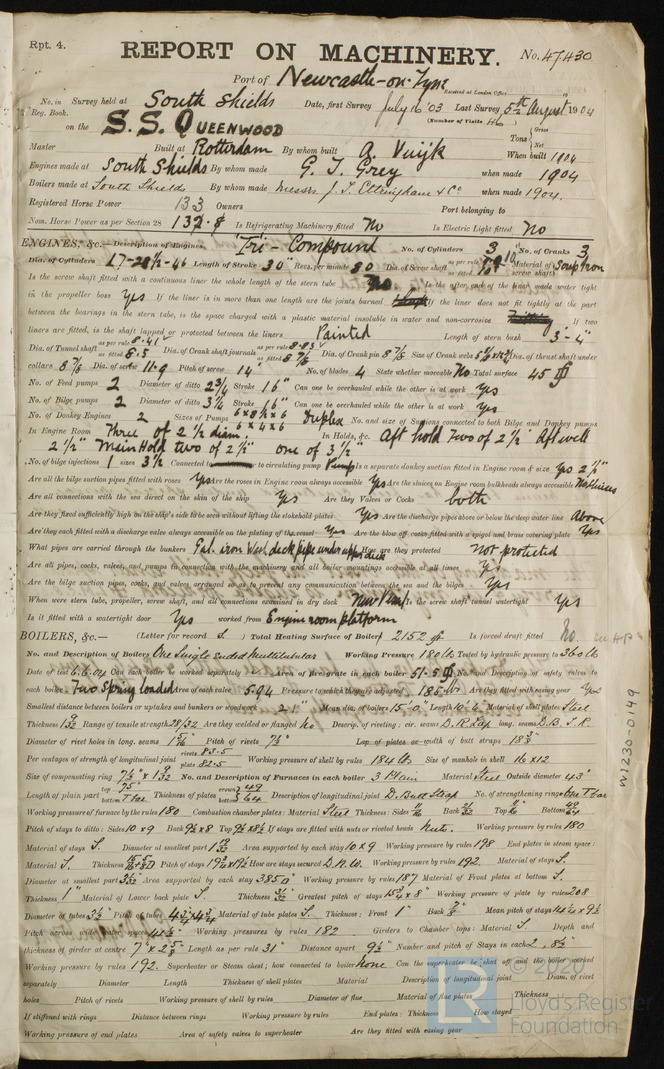 Rpt. 4.
REPORT ON MACHINERY.
No. 47430
Port of Newcastle-on-Tyne
Received at London Office
No. in Survey held at South Shields Date, first Survey July 16 '03 Last Survey 5th August 1904
Reg. Book.
(Number of Visits 46)
on the S.S. QUEENWOOD
Tons Gross Net
Master Built at Rotterdam By whom built A Vuijk When built 1904
Engines made at South Shields By whom made G. T. Grey when made 1904
Boilers made at South Shields By whom made Messrs J. T. Eltringham & Co when made 1904.
Registered Horse Power 133 Owners Port belonging to
Nom. Horse Power as per Section 28 132.8 Is Refrigerating Machinery fitted No Is Electric Light fitted No
ENGINES, &c.—Description of Engines Tri-Compound No. of Cylinders 3 No. of Cranks 3
Dia. of Cylinders 17-28½-46 Length of Stroke 30" Revs. per minute 80 Dia. of Screw shaft as per rule as fitted Material of screw shaft Scrap Iron
Is the screw shaft fitted with a continuous liner the whole length of the stern tube No Is the after end of the liner made water tight
in the propeller boss Yes If the liner is in more than one length are the joints burned If the liner does not fit tightly at the part
between the bearings in the stern tube, is the space charged with a plastic material insoluble in water and non-corrosive If two
liners are fitted, is the shaft lapped or protected between the liners Painted Length of stern bush 3'-4"
Dia. of Tunnel shaft as per rule 8.41 as fitted 8.5 Dia. of Crank shaft journals as per rule 8.83 as fitted 8 7/8 Dia. of Crank pin 8 7/8 Size of Crank webs Dia. of thrust shaft under
collars 8 7/8 Dia. of screw 11-9 Pitch of screw 14" No. of blades 4 State whether moveable No Total surface 45
No. of Feed pumps 2 Diameter of ditto 2¾ Stroke 16" Can one be overhauled while the other is at work Yes
No. of Bilge pumps 2 Diameter of ditto 3¼ Stroke 16" Can one be overhauled while the other is at work Yes
No. of Donkey Engines 2 Sizes of Pumps 6 x 8½ x 6 6 x 4 x 6 Duplex No. and size of Suctions connected to both Bilge and Donkey pumps
In Engine Room Three of 2½ diam. In Holds, &c. Aft hold two of 2½" Aft well
2½" Main Hold two of 2½" one of 3½"
No. of bilge injections 1 sizes 3½ Connected to circulating pump Pump Is a separate donkey suction fitted in Engine room & size Yes 2½"
Are all the bilge suction pipes fitted with roses Yes Are the roses in Engine room always accessible Yes Are the sluices on Engine room bulkheads always accessible No sluices
Are all connections with the sea direct on the skin of the ship Yes Are they Valves or Cocks both
Are they fixed sufficiently high on the ship's side to be seen without lifting the stokehold plates Yes Are the discharge pipes above or below the deep water line Above
Are they each fitted with a discharge valve always accessible on the plating of the vessel Yes Are the blow off cocks fitted with a spigot and brass covering plate Yes
What pipes are carried through the bunkers How are they protected Not protected
Are all pipes, cocks, valves, and pumps in connection with the machinery and all boiler mountings accessible at all times Yes
Are the bilge suction pipes, cocks, and valves arranged so as to prevent any communication between the sea and the bilges Yes
When were stern tube, propeller, screw shaft, and all connections examined in dry dock New Vessel Is the screw shaft tunnel watertight Yes
Is it fitted with a watertight door Yes worked from Engine room platform
BOILERS, &c.— (Letter for record S.) Total Heating Surface of Boilers 2152 Is forced draft fitted No.
No. and Description of Boilers One Single Ended Multitubular Working Pressure 180 lb Tested by hydraulic pressure to 360 lb
Date of test 6.6.04 Can each boiler be worked separately Area of fire-grate in each boiler 51.5 No. and Description of safety valves to
each boiler Two Spring loaded Area of each valve 5.94 Pressure to which they are adjusted 185 lbs. Are they fitted with easing gear Yes
Smallest distance between boilers or uptakes and bunkers or woodwork 21" Mean dia. of boilers 15'-0" Length 10'-6" Material of shell plates Steel
Thickness 1 9/32 Range of tensile strength 28/32 Are they welded or flanged No Descrip. of riveting: cir. seams D.R. Lap long. seams D.B.S.
Diameter of rivet holes in long. seams 1 5/16 Pitch of rivets 7½ Lap of plates or width of butt straps
Per centages of strength of longitudinal joint rivets 83.5 plate 82.5 Working pressure of shell by rules 184 lbs Size of manhole in shell 16 x 12
Size of compensating ring 7½" x 1 9/32 No. and Description of Furnaces in each boiler 3 Plain Material Steel Outside diameter 43"
Length of plain part top 75" bottom Thickness of plates crown bottom Description of longitudinal joint D. Butt Strap No. of strengthening rings
Working pressure of furnace by the rules 180 Combustion chamber plates: Material Steel Thickness: Sides Back Top Bottom
Pitch of stays to ditto: Sides 10 x 9 Back 9½ x 8 Top 9½ x 8½ If stays are fitted with nuts or riveted heads Nuts. Working pressure by rules 180
Material of stays S. Diameter at smallest part Area supported by each stay 10 x 9 Working pressure by rules 198 End plates in steam space:
Material S. Thickness Pitch of stays 19½ x 19½ How are stays secured D.N.W. Working pressure by rules 192. Material of stays S.
Diameter at smallest part Area supported by each stay 385 Working pressure by rules 187 Material of Front plates at bottom S.
Thickness 1" Material of Lower back plate S. Thickness Greatest pitch of stays Working pressure of plate by rules 208
Diameter of tubes 3½ Pitch of tubes 4¾ x 4¾ Material of tube plates S. Thickness: Front 1" Back Mean pitch of stays
Pitch across wide water spaces Working pressures by rules 182 Girders to Chamber tops: Material S. Depth and
thickness of girder at centre Length as per rule 31" Distance apart 9½" Number and pitch of Stays in each 2, 8½"
Working pressure by rules 192. Superheater or Steam chest; how connected to boiler None Can the superheater be shut off and the boiler worked
separately Diameter Length Thickness of shell plates Material Description of longitudinal joint Diam. of rivet
holes Pitch of rivets Working pressure of shell by rules Diameter of flue Material of flue plates Thickness
If stiffened with rings Distance between rings Working pressure by rules End plates: Thickness How stayed
Working pressure of end plates Area of safety valves to superheater Are they fitted with easing gear
W1230-0149
© 2020
Lloyd's Register
Foundation